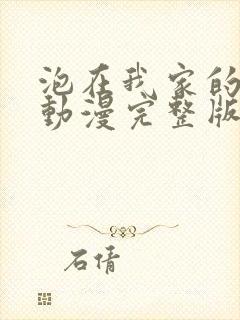 泡在我家的
動漫完整版
石倩